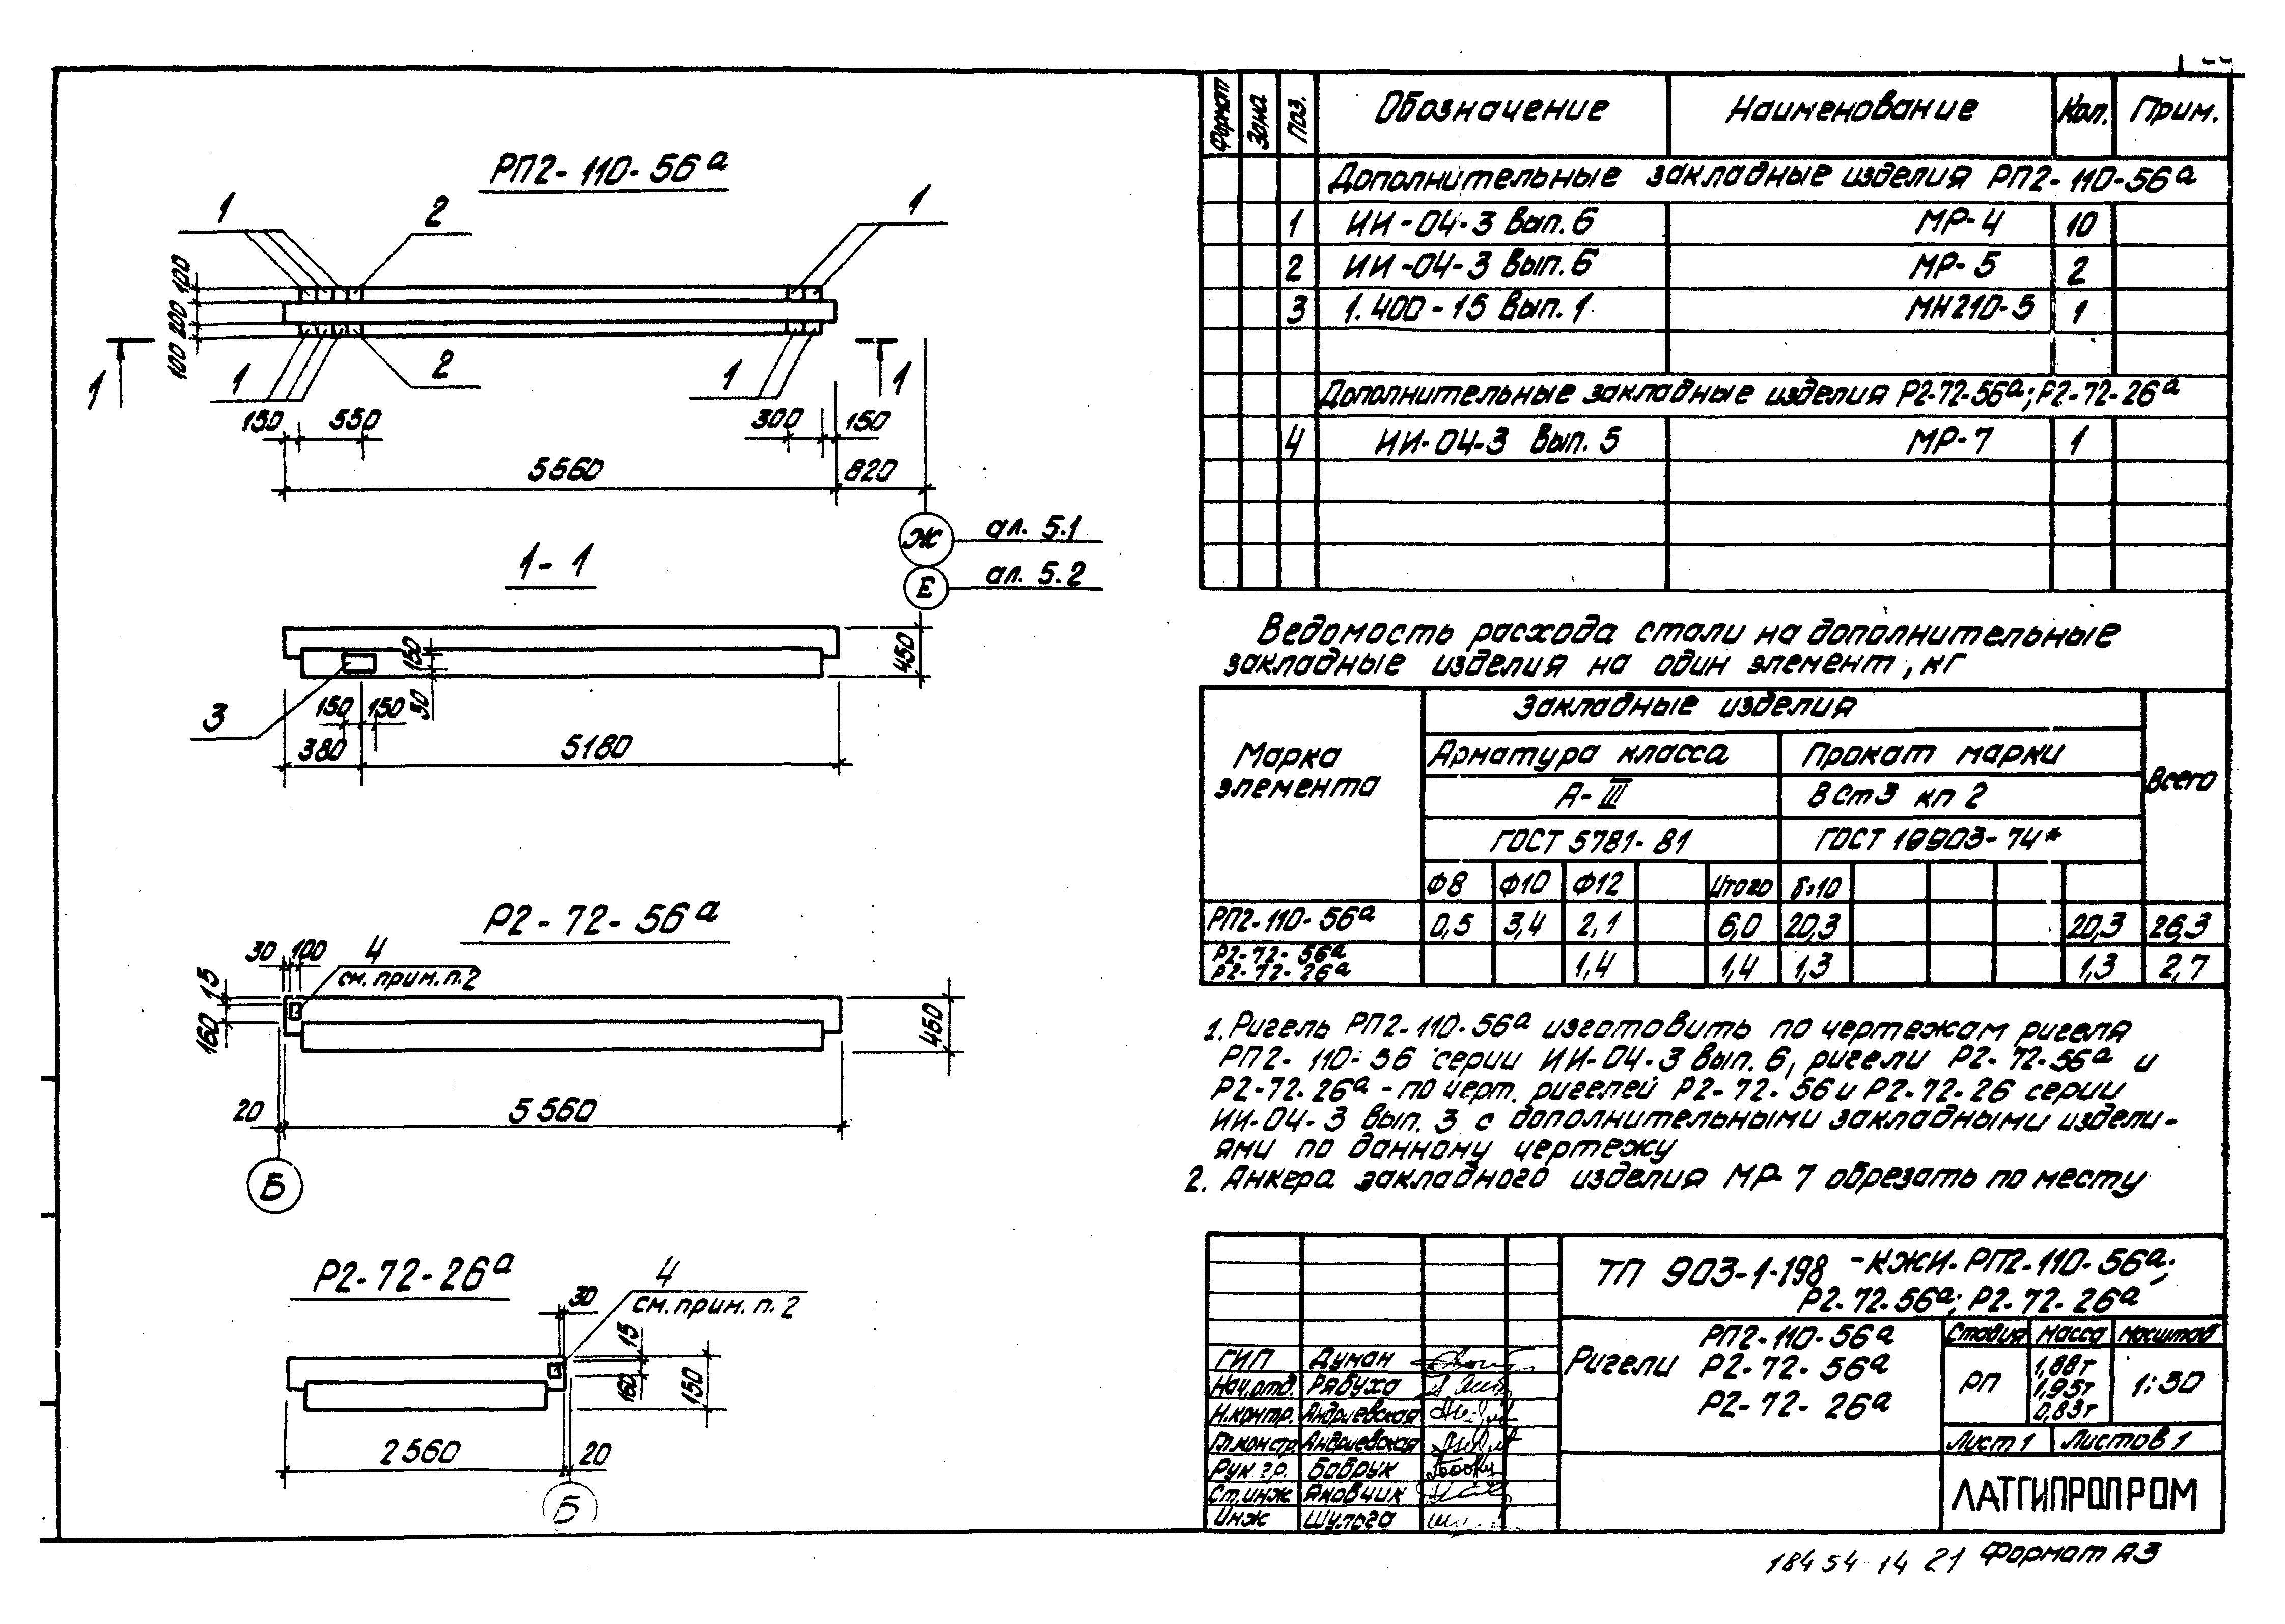 РП2-110-56а
1
2
1
100
200
100
1
2
1
1
1
150
550
300
150
5560
820
Ж
ал. 5.1
Е
ал. 5.2
1-1
450
150
30
3
150
150
380
5180
Р2-72-56а
30
100
4
см. прим. п.2
15
160
450
20
5560
Б
Р2-72-26а
4
см. прим. п. 2
30
15
160
150
2560
20
Б
Формат
Зона
Поз.
Обозначение
Наименование
Кол.
Прим.
Дополнительные закладные изделия РП2-110-56а
1 ИИ-04-3 Вып. 6 МР-4 10
2 ИИ-04-3 Вып. 6 МР-5 2
3 1.400-15 Вып. 1 МН210-5 1
Дополнительные закладные изделия Р2-72-56а; Р2-72-26а
4 ИИ-04-3 Вып. 5 МР-7 1
Ведомость расхода стали на дополнительные
закладные изделия на один элемент, кг
Марка
элемента
Закладные изделия
Всего
Арматура класса
Прокат марки
А-III
ВСт3 кп 2
ГОСТ 5781-81
ГОСТ 19903-74*
Ф8 Ф10 Ф12 Итого δ=10
РП2-110-56а 0,5 3,4 2,1 6,0 20,3 20,3 26,3
Р2-72-56а
Р2-72-26а 1,4 1,4 1,3 1,3 2,7
1. Ригель РП2-110-56а изготовить по чертежам ригеля
РП2-110-56 серии ИИ-04-3 вып. 6, ригели Р2-72-56а и
Р2-72-26а - по черт. ригелей Р2-72-56 и Р2-72-26 серии
ИИ-04-3 вып. 3 с дополнительными закладными издели-
ями по данному чертежу
2. Анкера закладного изделия МР-7 обрезать по месту
ТП 903-1-198 -КЖИ-РП2-110-56а;
Р2-72-56а; Р2-72-26а
Ригели
РП2-110-56а
Р2-72-56а
Р2-72-26а
Стадия Масса Масштаб
РП
1,88т
1,95т
0,83т
1:50
Лист 1 Листов 1
ЛАТГИПРОПРОМ
ГИП Думан
Нач.отд. Рябуха
Н.контр. Андриевская
Гл.констр. Андриевская
Рук гр. Бобрук
Ст.инж Яковчик
Инж Шульга
18454-14 21 Формат А3